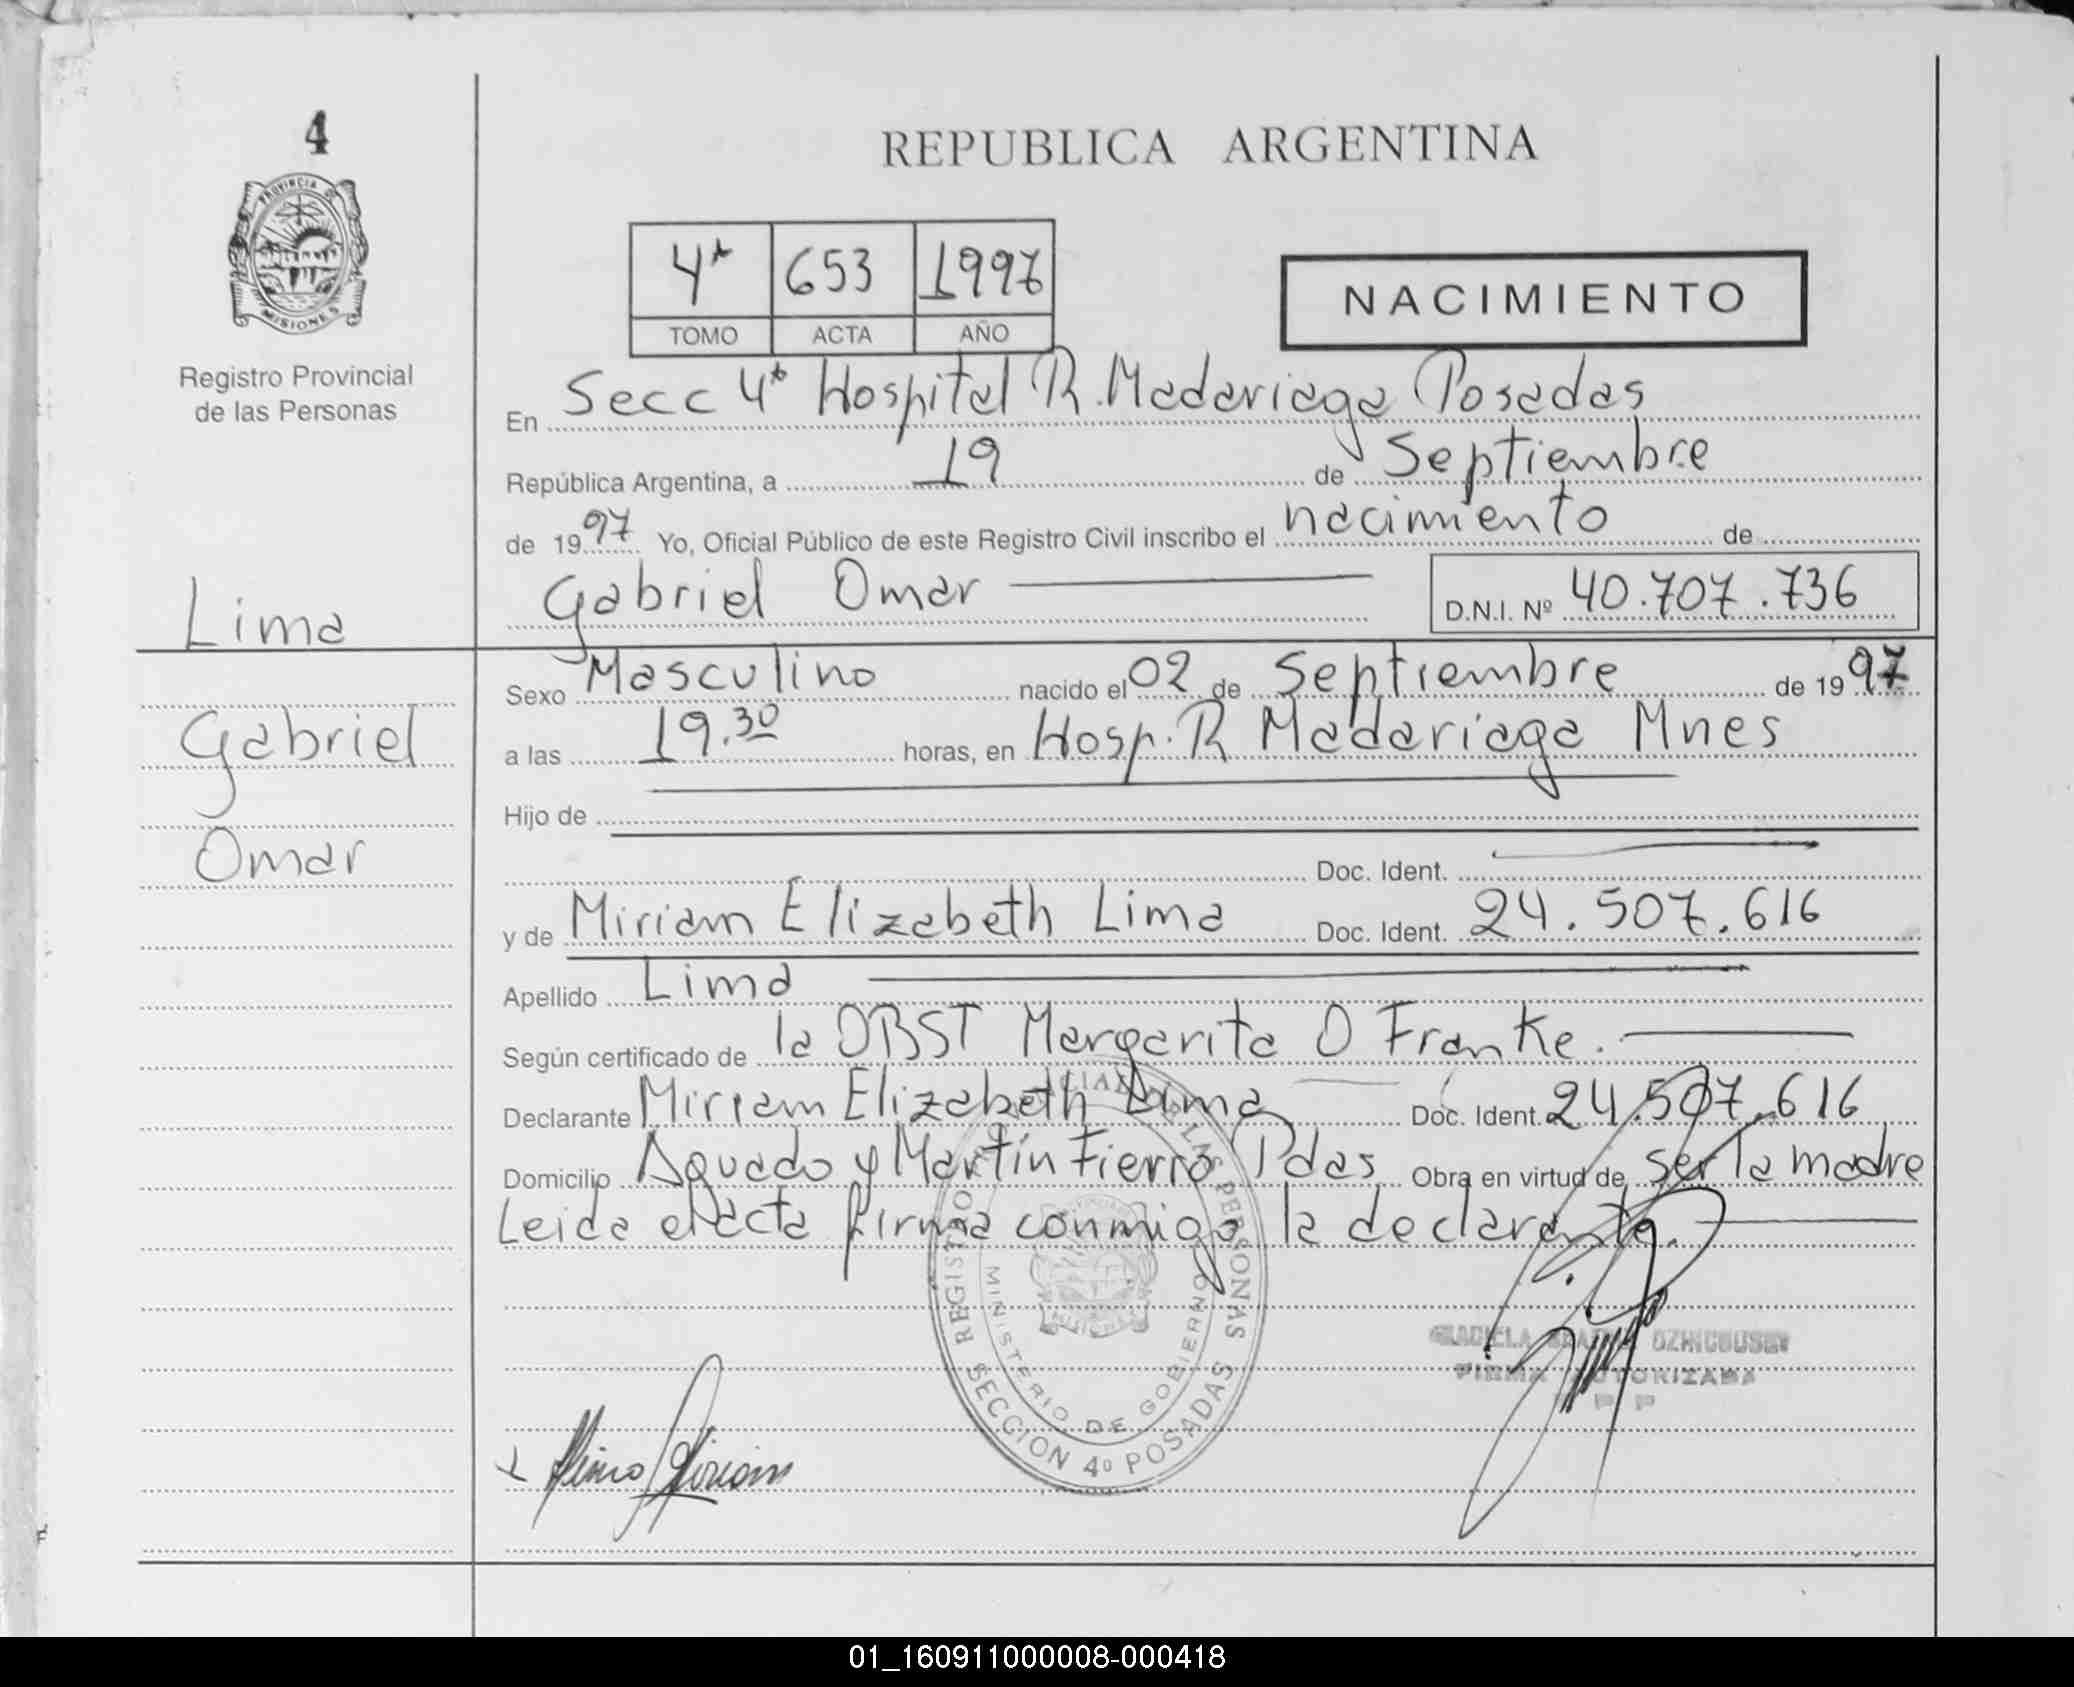 4
PROVINCIA DE
MISIONES
Registro Provincial
de las Personas
REPUBLICA ARGENTINA
4ª 653 1997
TOMO ACTA AÑO
NACIMIENTO
En Secc 4ª Hospital R. Madariaga Posadas
República Argentina, a 19 de Septiembre
de 1997 Yo, Oficial Público de este Registro Civil inscribo el nacimiento de
Gabriel Omar D.N.I. Nº 40.707.736
Lima
Gabriel
Omar
Sexo Masculino nacido el 02 de Septiembre de 1997
a las 19.30 horas, en Hosp. R Madariaga Mnes
Hijo de
Doc. Ident.
y de Miriam Elizabeth Lima Doc. Ident. 24.507.616
Apellido Lima
Según certificado de la OBST Margarita O Franke.
Declarante Miriam Elizabeth Lima Doc. Ident. 24.507.616
Domicilio Aguado y Martín Fierro Pdas Obra en virtud de ser la madre
Leida el acta firma conmigo la declarante.
REGISTRO PROVINCIAL DE LAS PERSONAS
MINISTERIO DE GOBIERNO
SECCION 4º POSADAS
MISIONES
GRACIELA
FIRMA AUTORIZADA
Lima Miriam
01_160911000008-000418